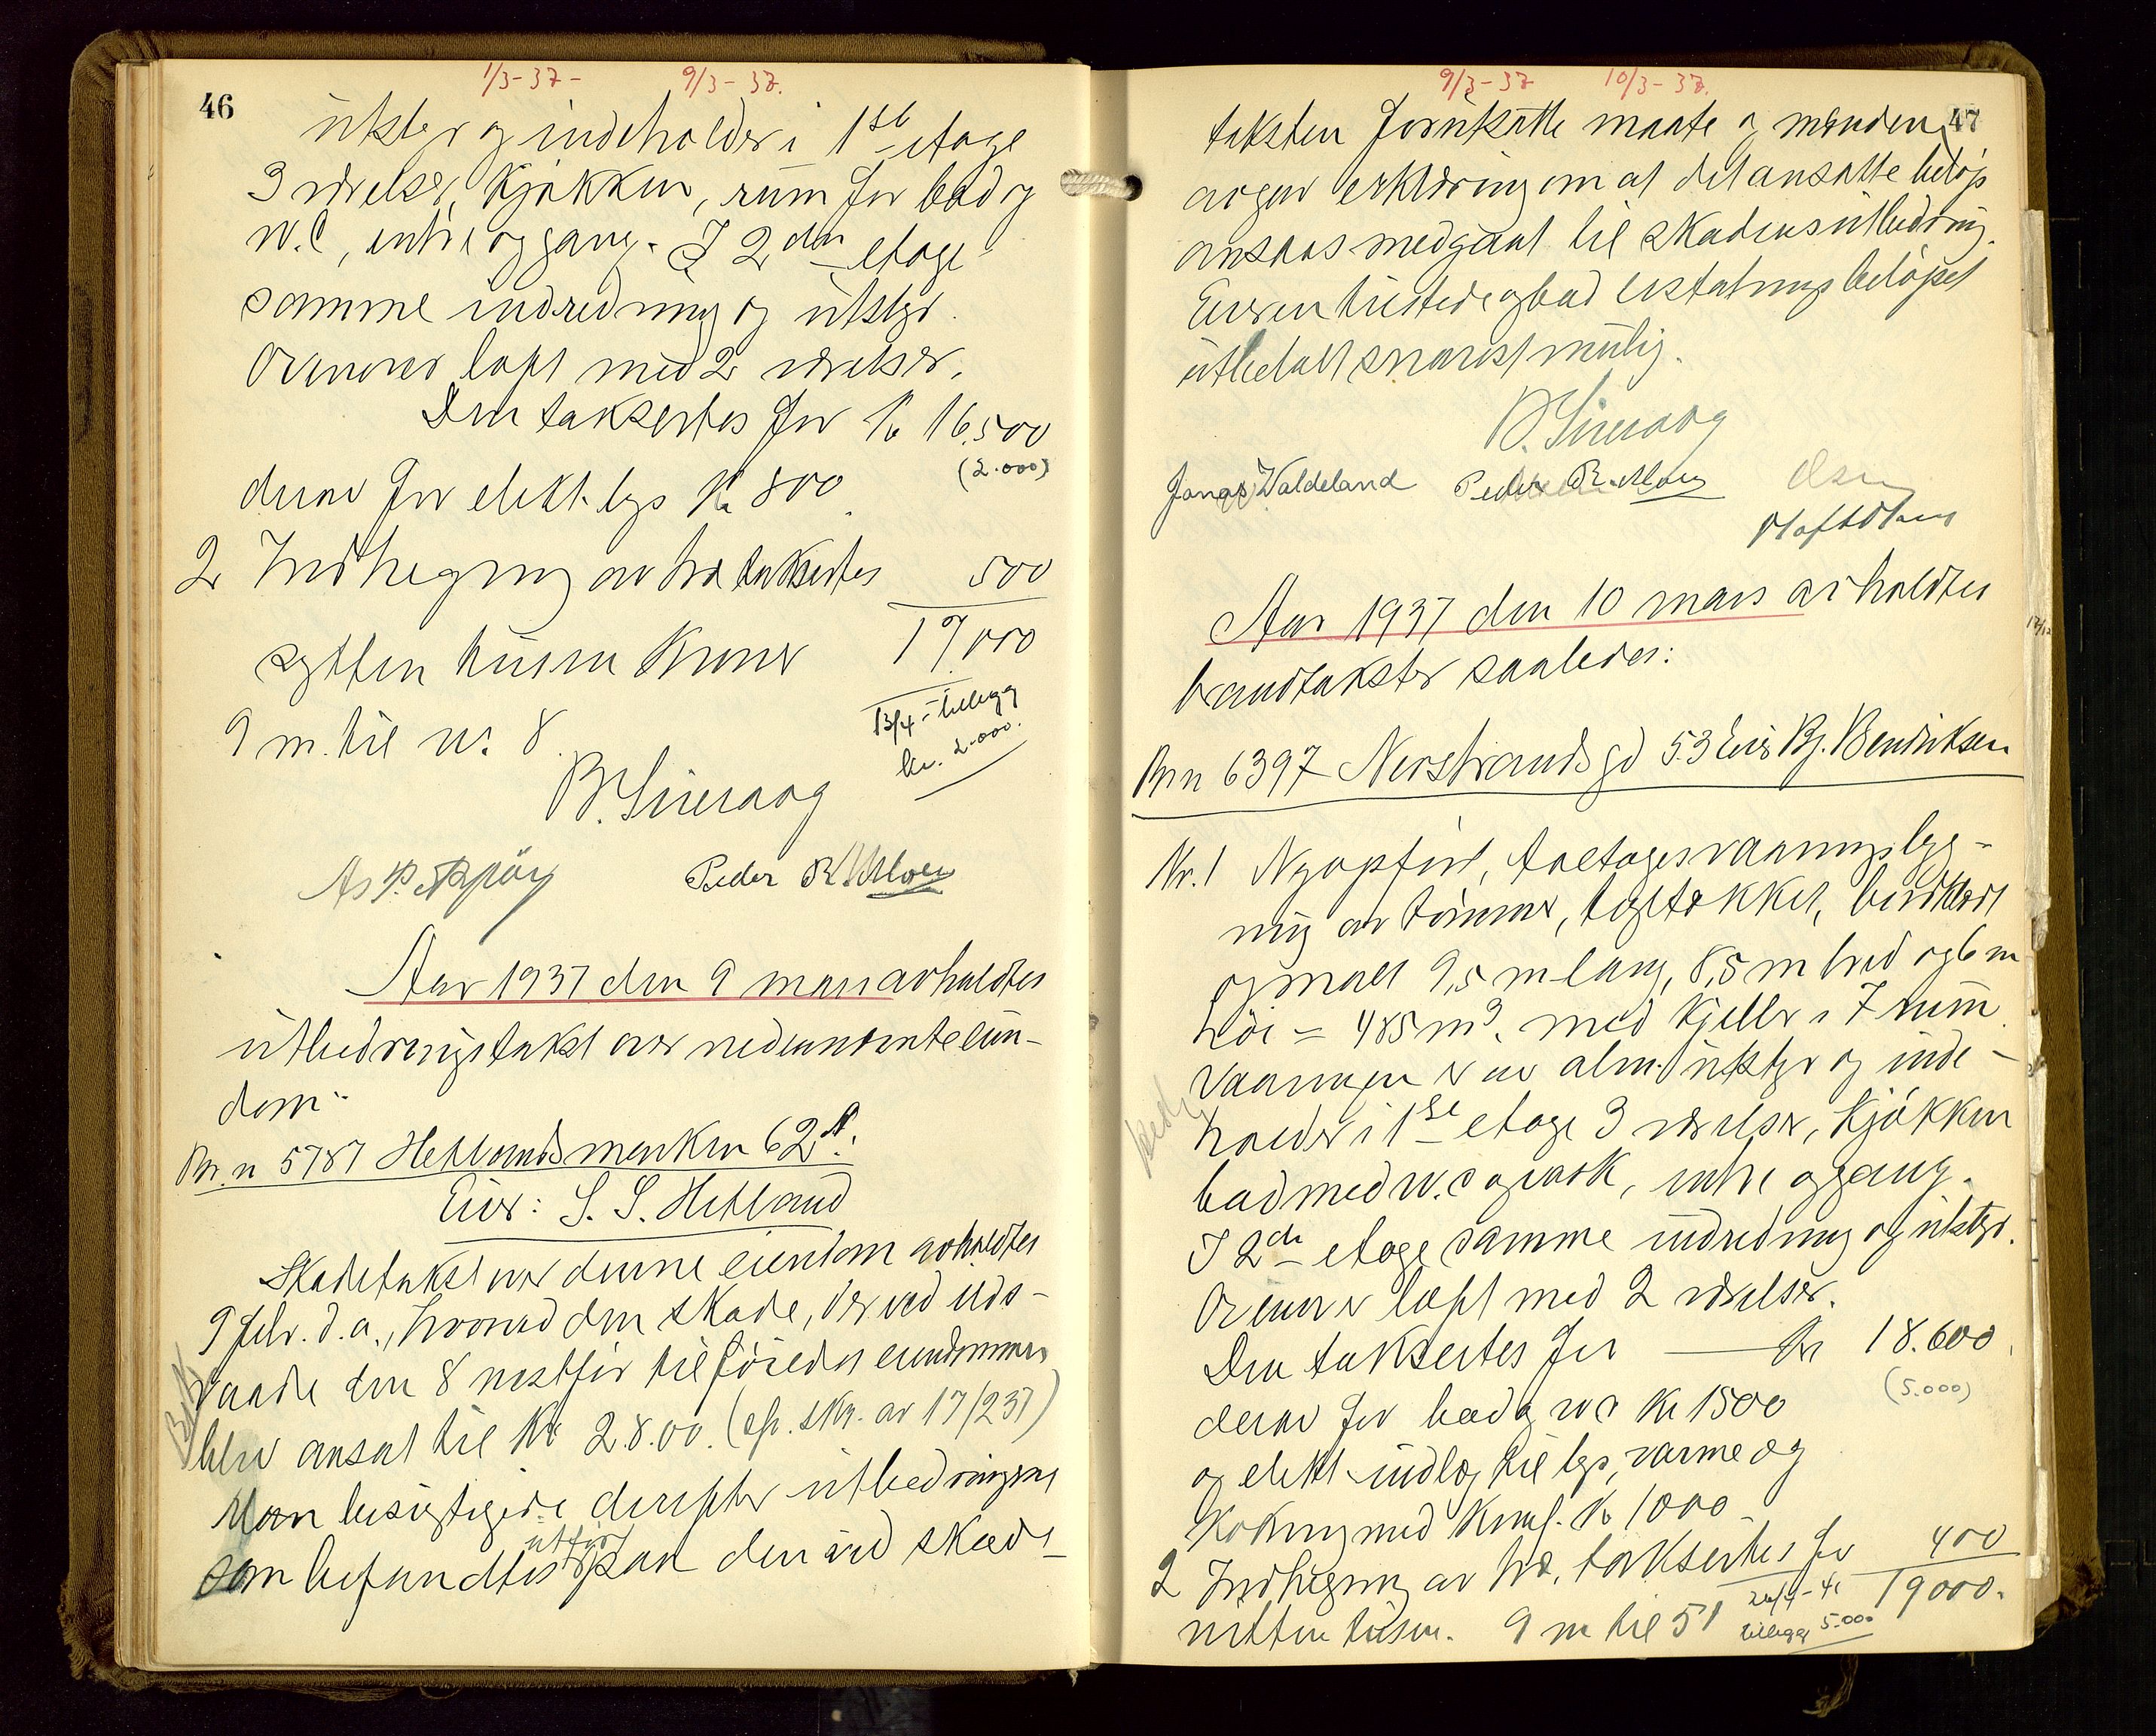 46
1/3-37- 9/3-37.
utstyr og indeholder i 1ste etage
3 værelser, kjøkken, rum for bad og
W.C, entre og gang. I 2den etage
samme indredning og utstyr.
Ovenover loft med 2 værelser.
Den takseertes for Kr 16.500
(2.000)
derav for elekt. lys Kr 800.
2 Indhegning av træ taksertes 500
sytten tusen kroner 17.000
13/4 - tillegg
kr. 2.000.
9 m. til nr. 8.
B. Sireraag
Peder R. Moen
Aar 1937 den 9 mars avholdtes
utbedringstakst over nedennævnte eien-
dom:
Br.n 5787 Hetlandsmarken 62A.
Eier: S. S. Hetland
Skadetakst over denne eiendom avholdtes
9 febr. d.a., hvorved den skade, der ved ilds-
vaade den 8 næstfør tilføiedes eiendommen
blev ansat til Kr 28.00. (cfr. skr. av 17/2 37)
Man besigtigede derefter utbedringen
utført
som befandtes paa den ved skade-
47
9/3-37 10/3-37.
taksten forutsatte maate og manden
avgav erklæring om at det ansatte beløp
ansaas medgaat til skadens utbedring.
Eieren tilstede og bad erstatningsbeløpet
utbetalt snarest mulig.
B. Sireraag
Jonas Waldeland Peder R. Moen Olsen
Olaf Olsen
Aar 1937 den 10 mars avholdtes
brandtakster saaledes:
Br.n 6397 Nerstrandsgd 53 Eier Bj. Bendiksen
Nr. 1 Nyopført, toetages vaaningsbyg-
ning av tømmer, teglstækket, bordklædt
og malt 9,5 m lang, 8,5 m bred og 6 m
høi = 485 m3. med kjeller i 7 rum.
Vaaningen er av alm. utstyr og inde-
holder i 1ste etage 3 værelser, kjøkken
bad med w.c og vask, entre og gang.
I 2de etage samme indredning og utstyr.
Ovenover loft med 2 værelser.
Den taksertes for Kr 18.600
(5.000)
derav for bad og wc Kr 1500
og elekt. indlæg til lys, varme og
kokning med komf. Kr 1000
2 Indhegning av træ, taksertes for 400
19000.
nitten tusen. 9 m til 51
tillegg 5.000